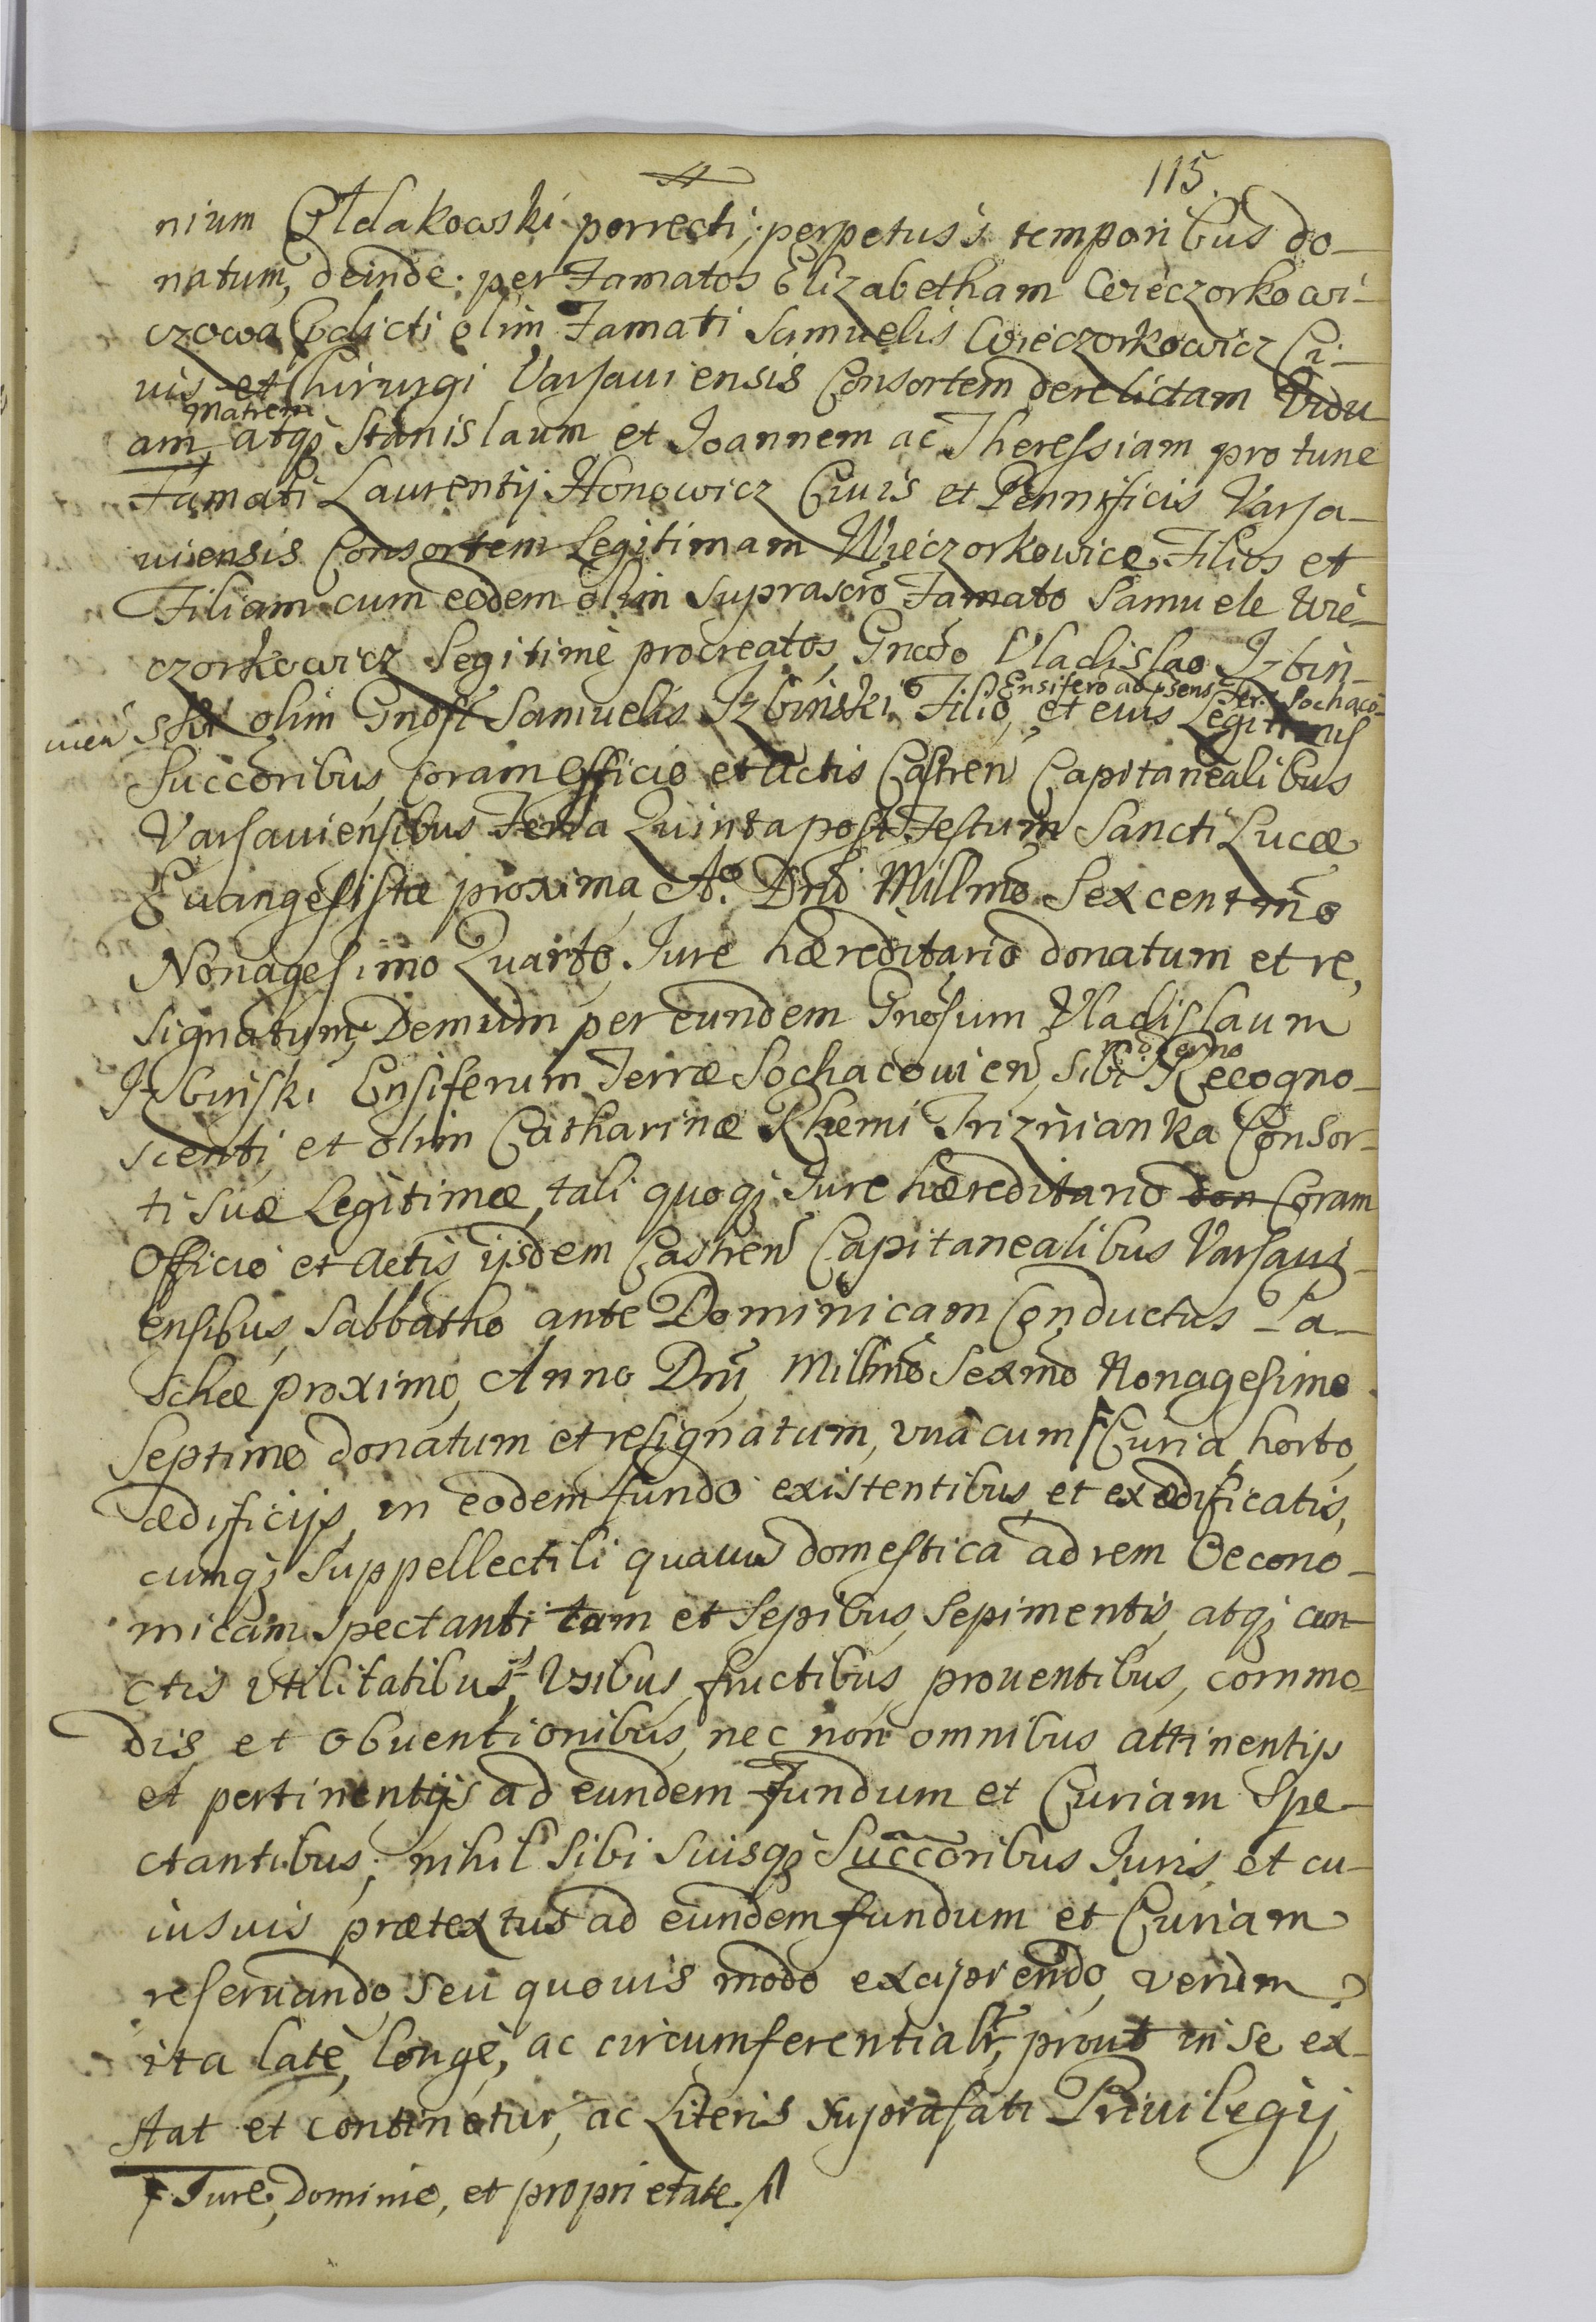 115.
nium Ołdakowski porrecti, perpetuis temporibus do-
natum, deinde per Famatos Elizabetham Wieczorkowi-
czowa Edicti olim Famati Samuelis Wieczorkowicz Ci-
uis et Chirurgi Varsauiensis Consortem derelictam Vidu
matrem
am, atq; Stanislaum et Joannem ac Theressiam pro tunc
Famati Laurentij Honowicz Ciuis et Pennificis Varsa-
uiensis Consortem Legitimam Wieczorkowice Filios et
Filiam cum eodem olim suprascro Famato Samuele Wie-
czorkowicz legitime procreatos, Gnoso Vladislao Izbin-
Ensifero ad psens Ter. Sochaco-
uien ski olim Gnosi Samuelis Izbinski Filio, et eius Legitimis
Succoribus, coram Officio et Actis Castren Capitanealibus
Varsauiensibus Feria Quinta post Festum Sancti Lucæ
Euangelistæ proxima, Ao. Dni Millmo Sexcentmo
Nonagesimo Quarto, Jure hæreditario donatum et re,
signatum, Demum per eundem Gnosum Vladislaum
moderno
Izbinski Ensiferum Terræ Sochacouien, sibi Recogno-
scenti, et olim Catharinæ Rhemi Triznianka Consor-
ti suæ Legitimæ, tali quoq; Jure hæreditario don Coram
Officio et Actis ijsdem Castren Capitanealibus Varsaui-
ensibus, Sabbatho ante Dominicam Conductus Pa-
schæ proximo, Anno Dni Millmo Sexmo Nonagesimo
Septimo donatum et resignatum, vnà cum Curia, horto,
ædificijs, in eodem fundo existentibus, et exædificatis,
cumq; Suppellectili quauis domestica ad rem Oecono-
micam spectanti tam et Sepibus, Sepimentis, atq; cun-
ctis vtilitatibus, Vsibus, fructibus, prouentibus, commo-
dis et obuentionibus, nec non omnibus attinentijs
et pertinentijs ad eundem Fundum et Curiam Spe-
ctantibus; nihil Sibi Suisq; Succoribus Juris, et cu-
iusuis prætextus ad eundem fundum et Curiam
reseruando, seu quouis modo excipiendo, verum
ita latè, longè, ac circumferentialr, prout in se ex-
stat et continetur, ac Literis suprafati Priuilegij
Jure, dominio, et proprietate